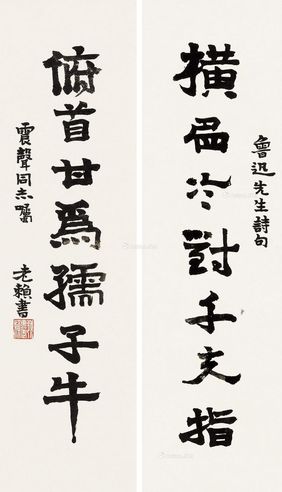 魯迅先生詩句
橫眉冷對千夫指
俯首甘為孺子牛
震聲同志囑
老賴書